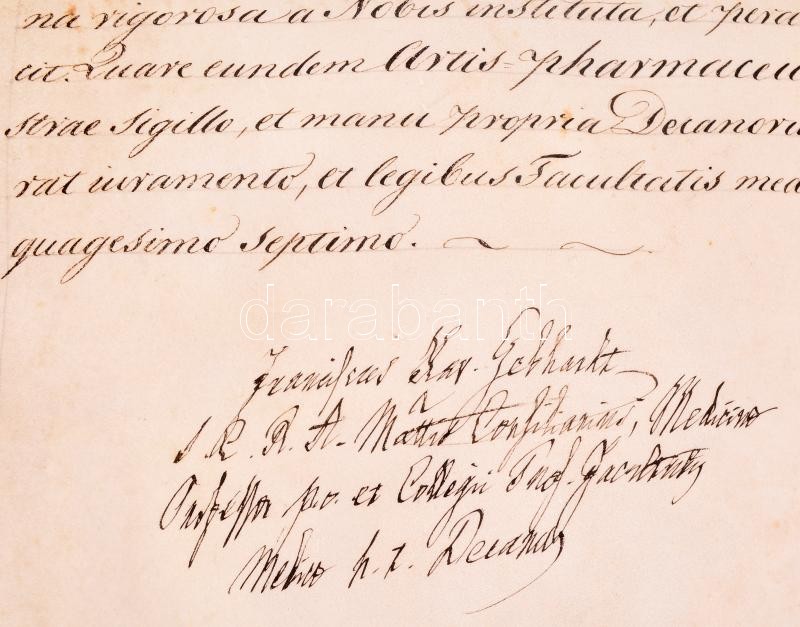 na rigorosa a Nobis instituta, et pera
cit. Quare eundem Artis=pharmaceu
strae Sigillo, et manu propria Decanoru
rat iuramento, et legibus Facultatis med
quagesimo septimo.
darabanth
Franciscus Xav. Gebhardt
S. R. A. Mattis Consiliarius, Medicinae
Professor p.o. et Collegii Prof. Facultatis
Medicae h. t. Decanus